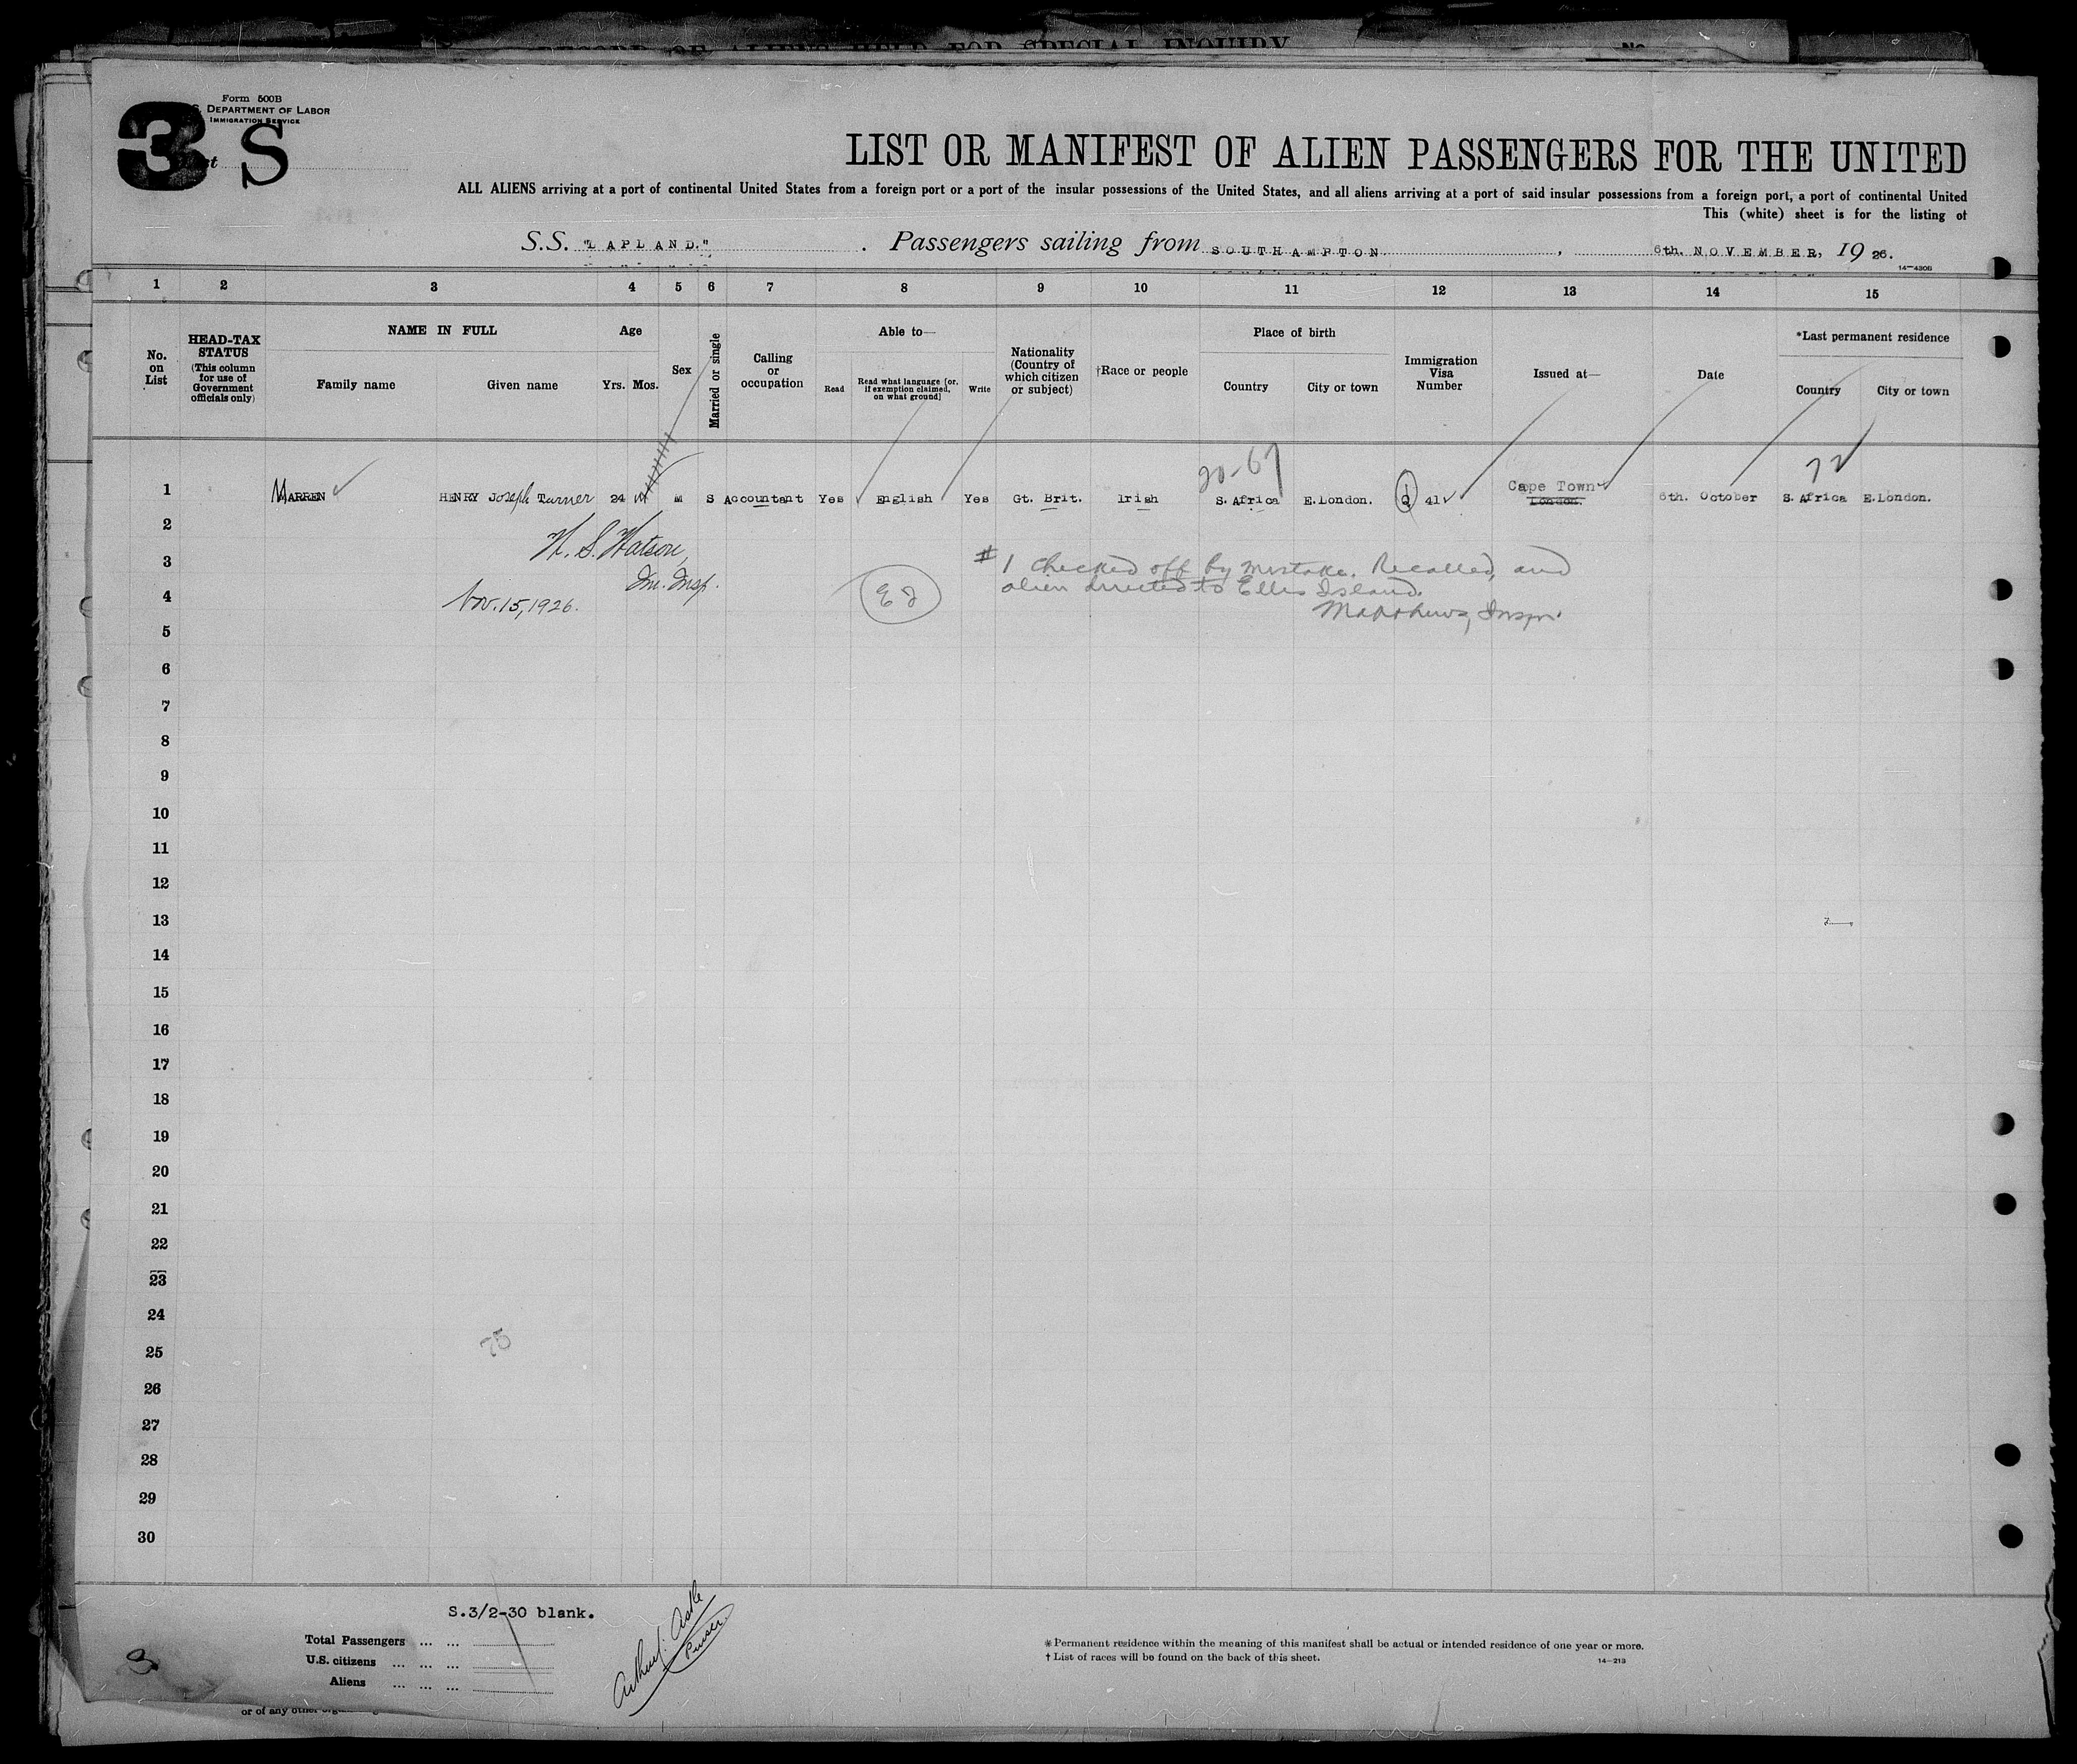 RECORD OF ALIENS HELD FOR SPECIAL INQUIRY No
Form 500B
S. DEPARTMENT OF LABOR
IMMIGRATION SERVICE
3 st S
LIST OR MANIFEST OF ALIEN PASSENGERS FOR THE UNITED
ALL ALIENS arriving at a port of continental United States from a foreign port or a port of the insular possessions of the United States, and all aliens arriving at a port of said insular possessions from a foreign port, a port of continental United
This (white) sheet is for the listing of
S.S. "LAPLAND." . Passengers sailing from SOUTHAMPTON , 6th. NOVEMBER, 19 26.
14—430B
1 2 3 4 5 6 7 8 9 10 11 12 13 14 15
No. on List
HEAD-TAX STATUS (This column for use of Government officials only)
NAME IN FULL
Family name Given name
Age
Yrs. Mos.
Sex
Married or single
Calling or occupation
Able to—
Read Read what language [or, if exemption claimed, on what ground] Write
Nationality (Country of which citizen or subject)
†Race or people
Place of birth
Country City or town
Immigration Visa Number
Issued at—
Date
*Last permanent residence
Country City or town
20-67 72
Cape Town
1 MARREN HENRY Joseph Turner 24 M S Accountant Yes English Yes Gt. Brit. Irish S. Africa E.London. Q 41 London. 6th. October S. Africa E.London.
2
N. S. Watson,
3 #1 Checked off by mistake. Recalled, and
Im. Insp. alien directed to Ellis Island.
4 Nov. 15, 1926. Matthews, Inspr.
5
6
7
8
9
10
11
12
13
14
15
16
17
18
19
20
21
22
23
24
75
25
26
27
28
29
30
S.3/2-30 blank.
Total Passengers ... ...
U.S. citizens ... ... ...
Aliens ... ... ...
Purser
*Permanent residence within the meaning of this manifest shall be actual or intended residence of one year or more.
†List of races will be found on the back of this sheet.
14—213
or of any other